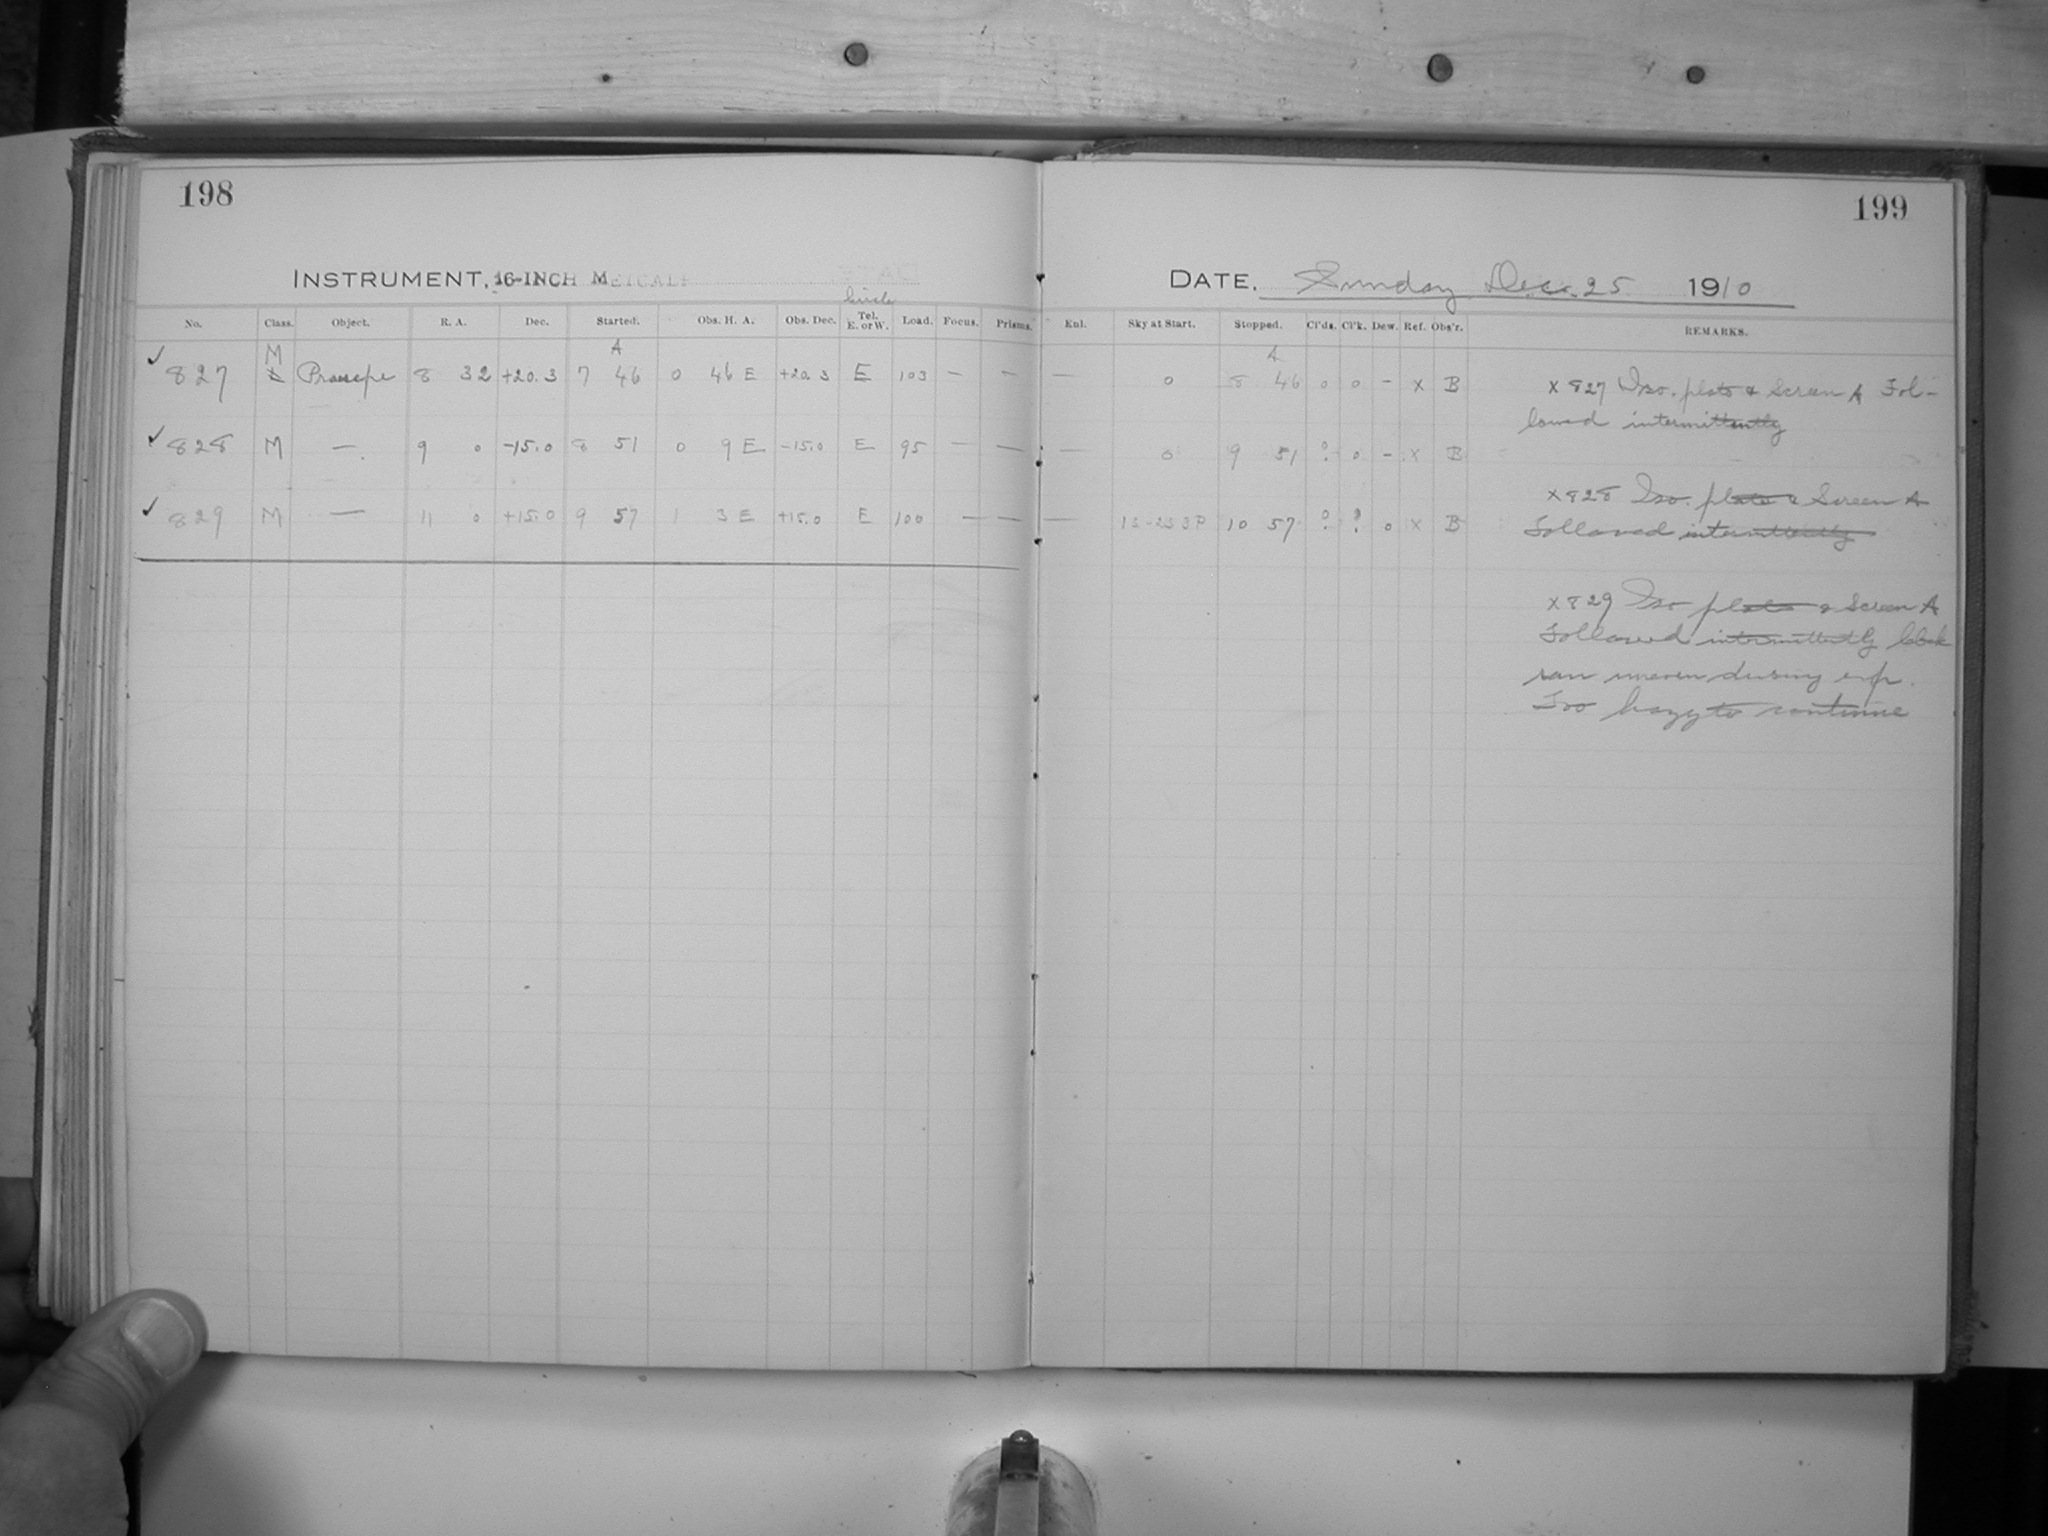 198
INSTRUMENT, 16-INCH METCALF
circle
No. Class. Object. R. A. Dec. Started. Obs. H. A. Obs. Dec. Tel. E. or W. Load. Focus. Prisms.
M A
✓ 827 Praesepe 8 32 +20.3 7 46 0 46 E +20.3 E 103 — —
✓ 828 M — 9 0 -15.0 8 51 0 9 E -15.0 E 95 — —
✓ 829 M — 11 0 +15.0 9 57 1 3 E +15.0 E 100 — —
199
DATE. Sunday Dec. 25 1910
Enl. Sky at Start. Stopped. Cl'ds. Cl'k. Dew. Ref. Obs'r. REMARKS.
A
— 0 8 46 0 0 - X B
— 0 9 51 ? 0 - X B
— 10 57 0 X B
X 827 Iso. plate & Screen A Fol-
lowed intermittently
X 828 Iso. plate & Screen A
Followed intermittently
X 829 Iso plate & Screen A
Followed intermittently Clock
ran uneven during exp.
Too hazy to continue